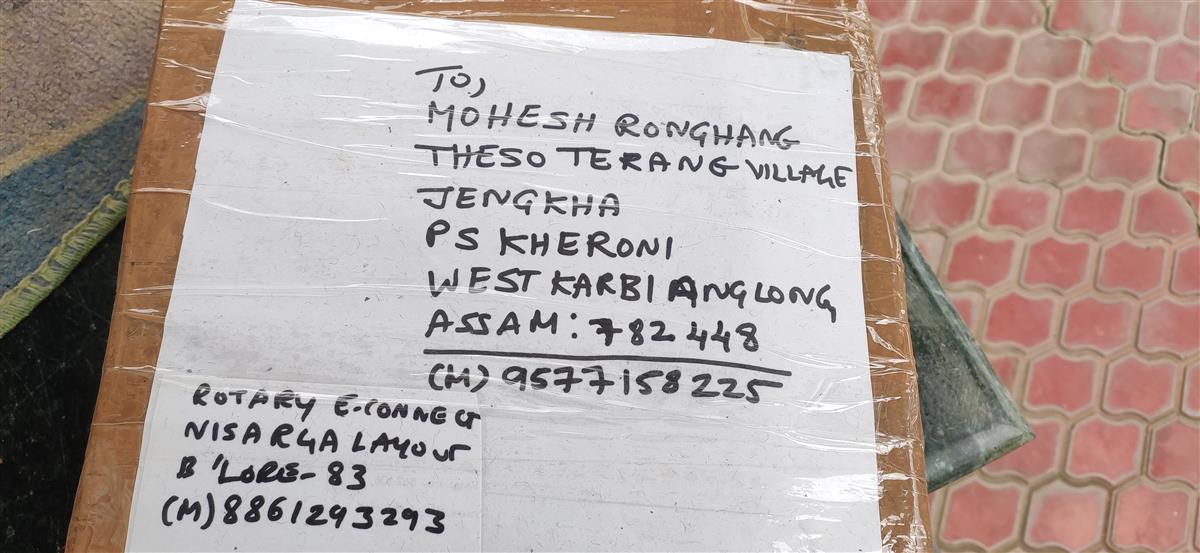 TO,
MOHESH RONGHANG
THESO TERANG VILLAGE
JENGKHA
PS KHERONI
WEST KARBI ANGLONG
ASSAM: 782448
(M) 9577158225
ROTARY E-CONNECT
NISARGA LAYOUT
B'LORE-83
(M) 8861293293